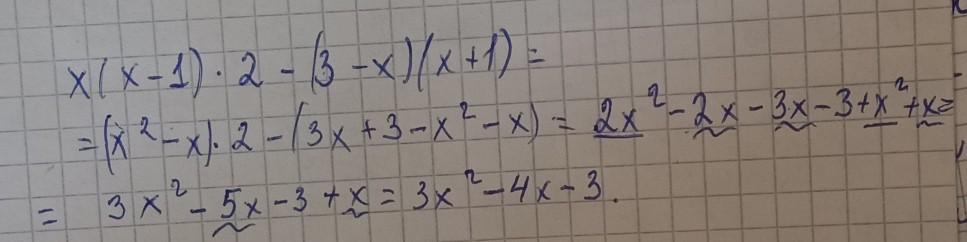 x(x-1)·2-(3-x)(x+1)=
=(x²-x)·2-(3x+3-x²-x)=2x²-2x-3x-3+x²+x=
= 3x²-5x-3+x=3x²-4x-3.